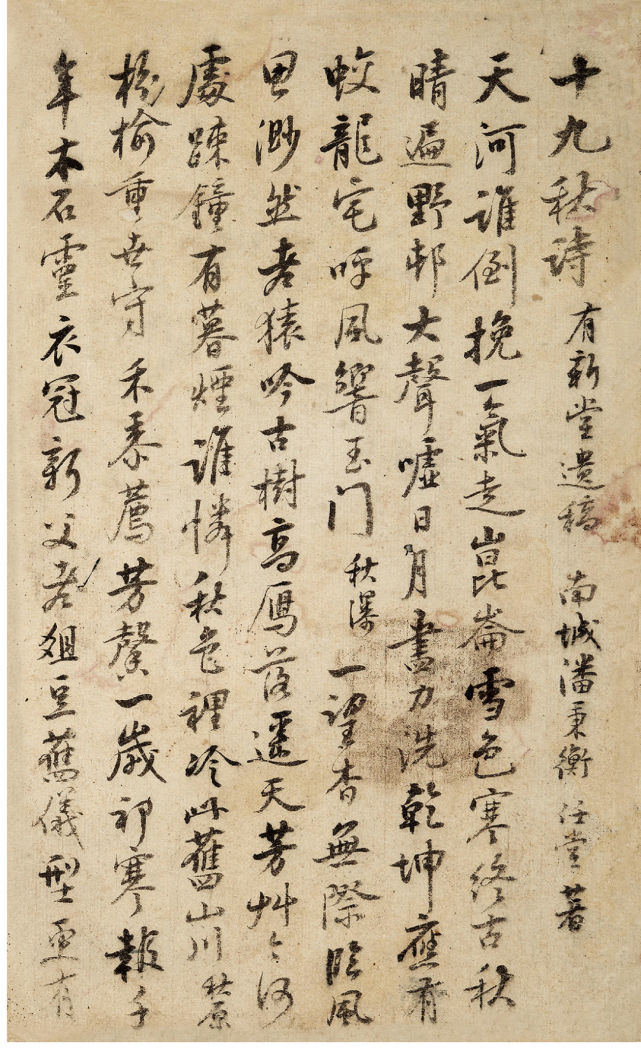 十九秋诗 有新堂遗稿 南城潘秉衡任堂著
天河谁倒挽一氣走崑崙雪色寒终古秋
晴遍野邨大聲嘘日月盡力洗乾坤應有
蛟龍宅呼風響玉门 秋瀑 一望杳無際临風
思渺然老猿吟古樹高雁落遥天芳艸今何
處疎鐘有暮煙谁憐秋色裡冷此舊山川 蔡
枌榆重世守禾黍薦芳馨一歲祁寒報千
年木石靈衣冠新父老俎豆舊儀型更有